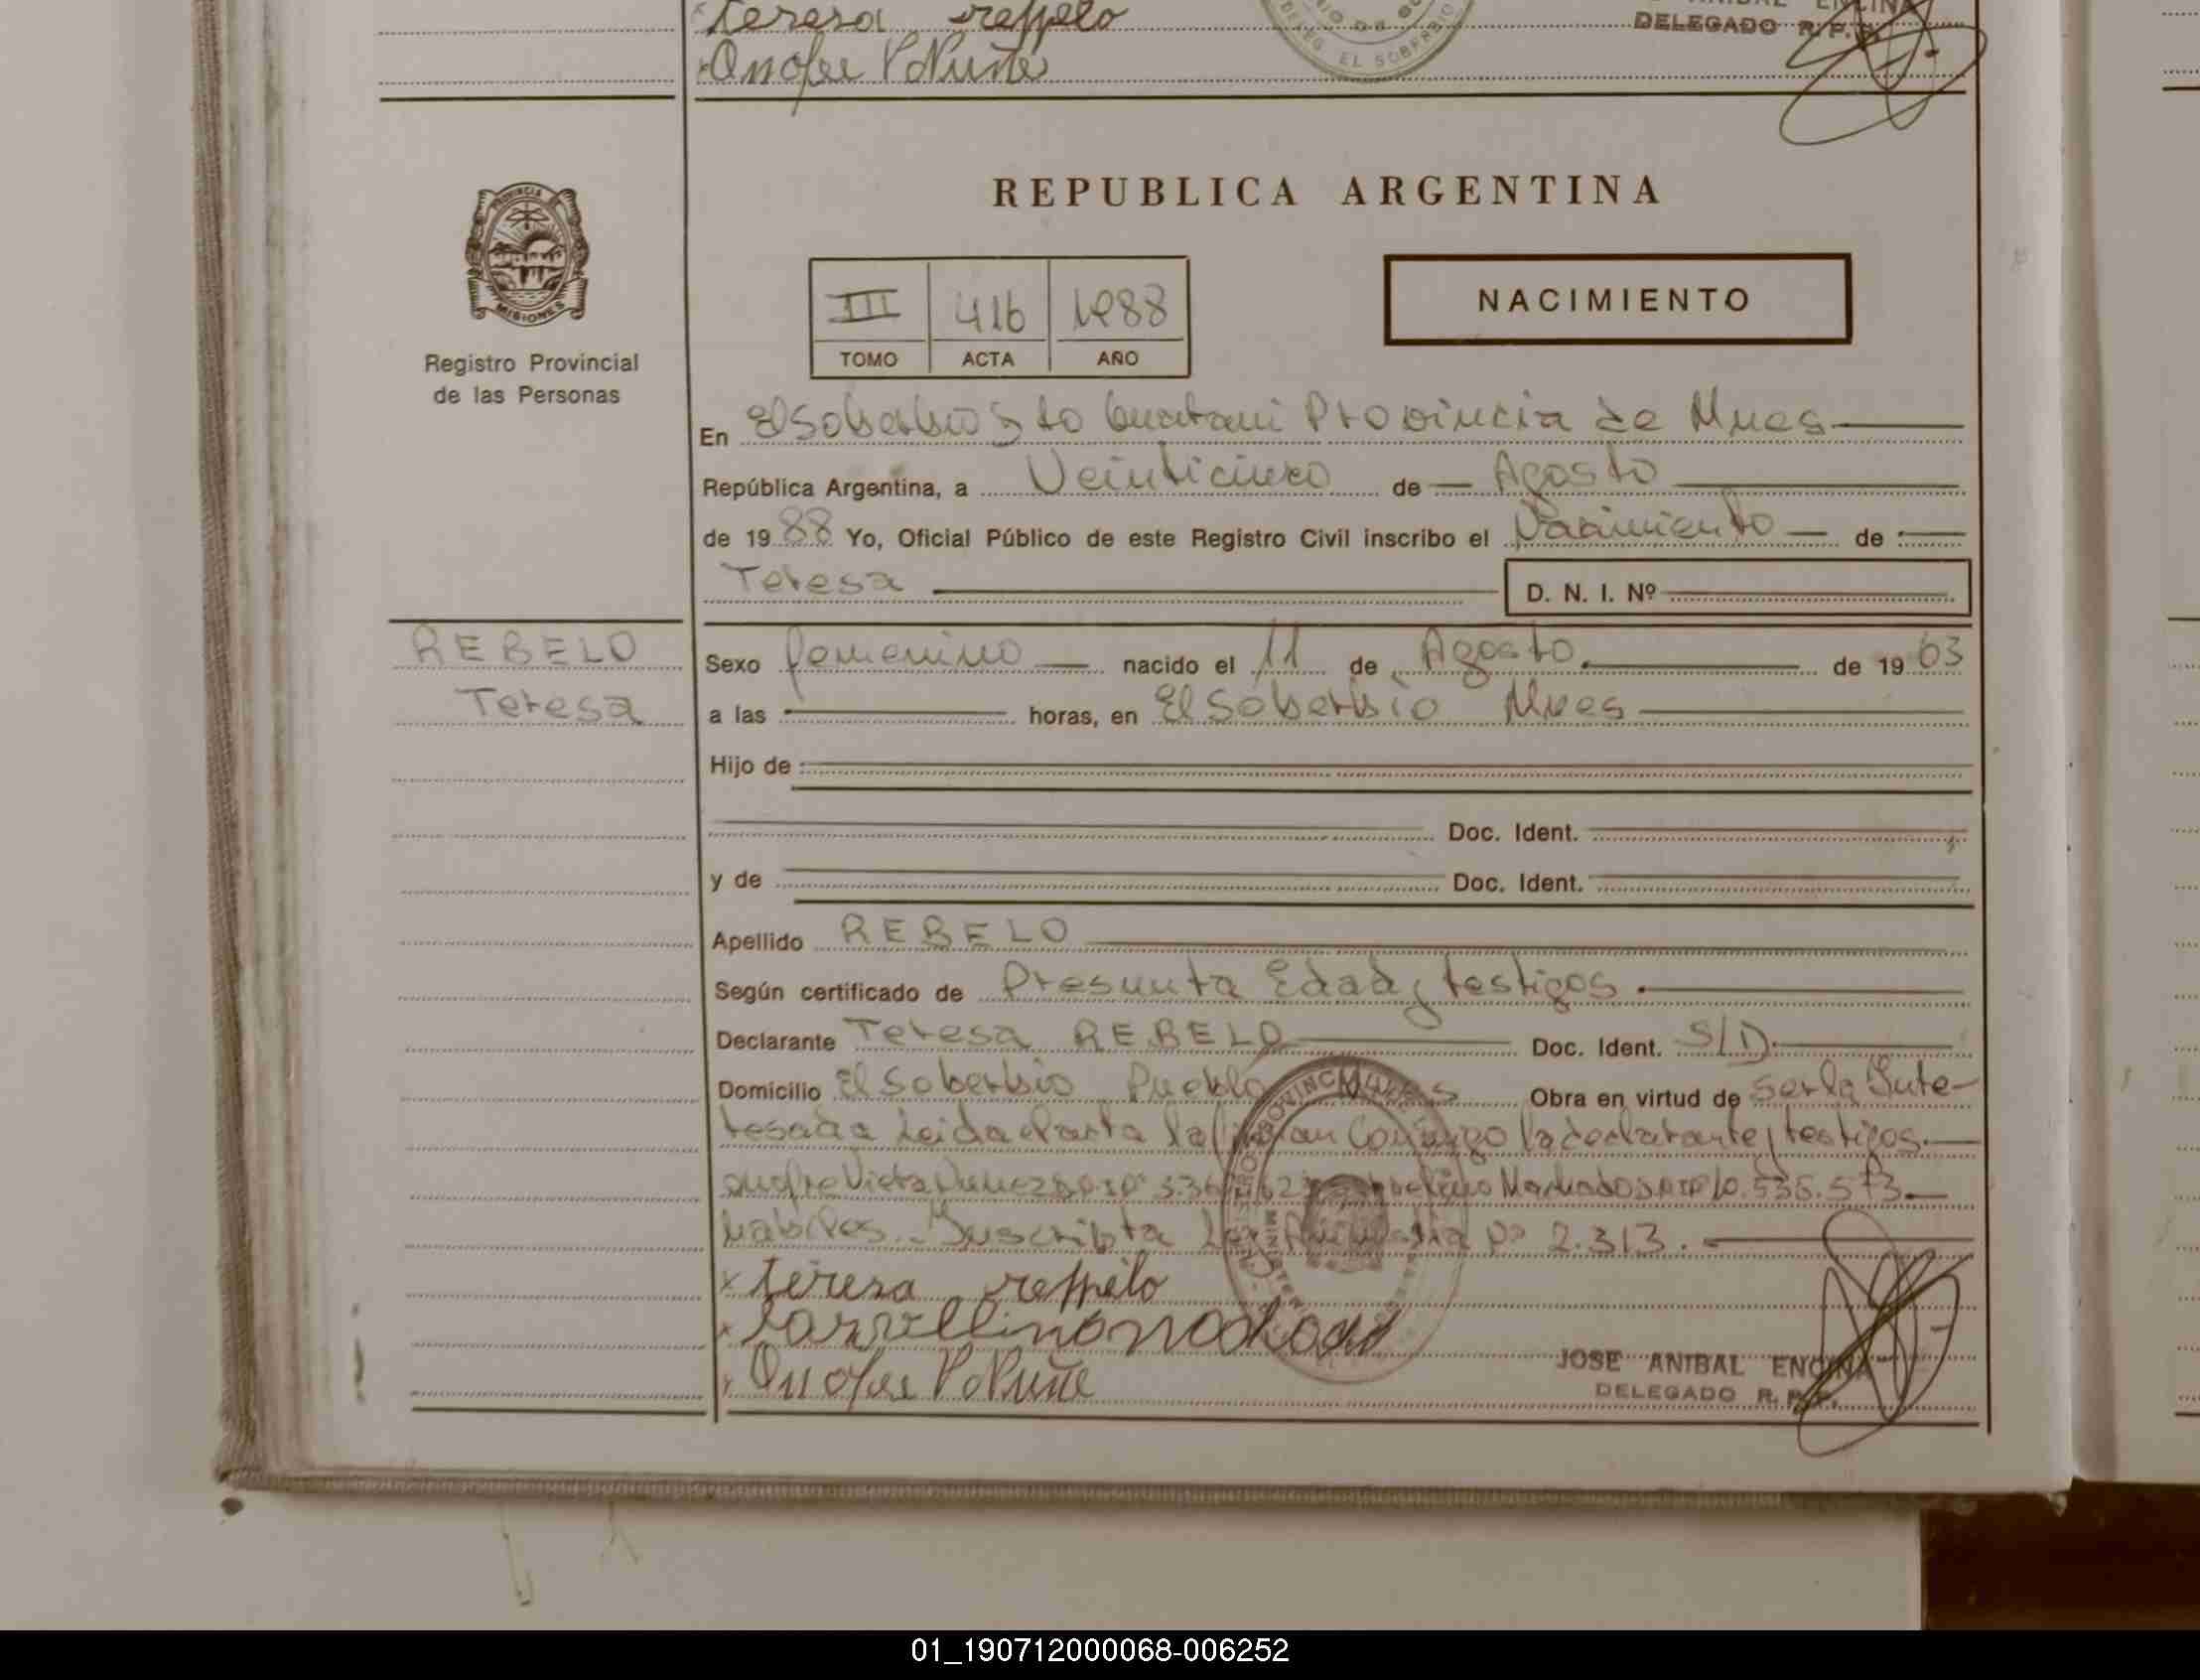 teresa reppelo
DELEGADO R. P. P.
Onofre V. Nuñe
EL SOBERBIO
REPUBLICA ARGENTINA
PROVINCIA
MISIONES
III 416 1988
TOMO ACTA AÑO
NACIMIENTO
Registro Provincial
de las Personas
En El Soberbio Dto Guarani Provincia de Mnes
República Argentina, a Veinticinco de Agosto
de 1988 Yo, Oficial Público de este Registro Civil inscribo el Nacimiento de
Teresa D. N. I. Nº
REBELO
Teresa
Sexo femenino nacido el 11 de Agosto de 1963
a las horas, en El Soberbio Mnes
Hijo de
Doc. Ident.
y de Doc. Ident.
Apellido REBELO
Según certificado de Presunta Edad y testigos
Declarante Teresa REBELO Doc. Ident. S/D
Domicilio El Soberbio Pueblo Obra en virtud de ser la Inte-
resada Leida el acta la firman Conmigo la declarante y testigos
Machado 10.535.573
habiles. Inscripta Ley Amnistia Nº 2.313.
teresa reppelo
Onofre V. Nuñe
JOSE ANIBAL ENCINA
DELEGADO R. P. P.
01_190712000068-006252